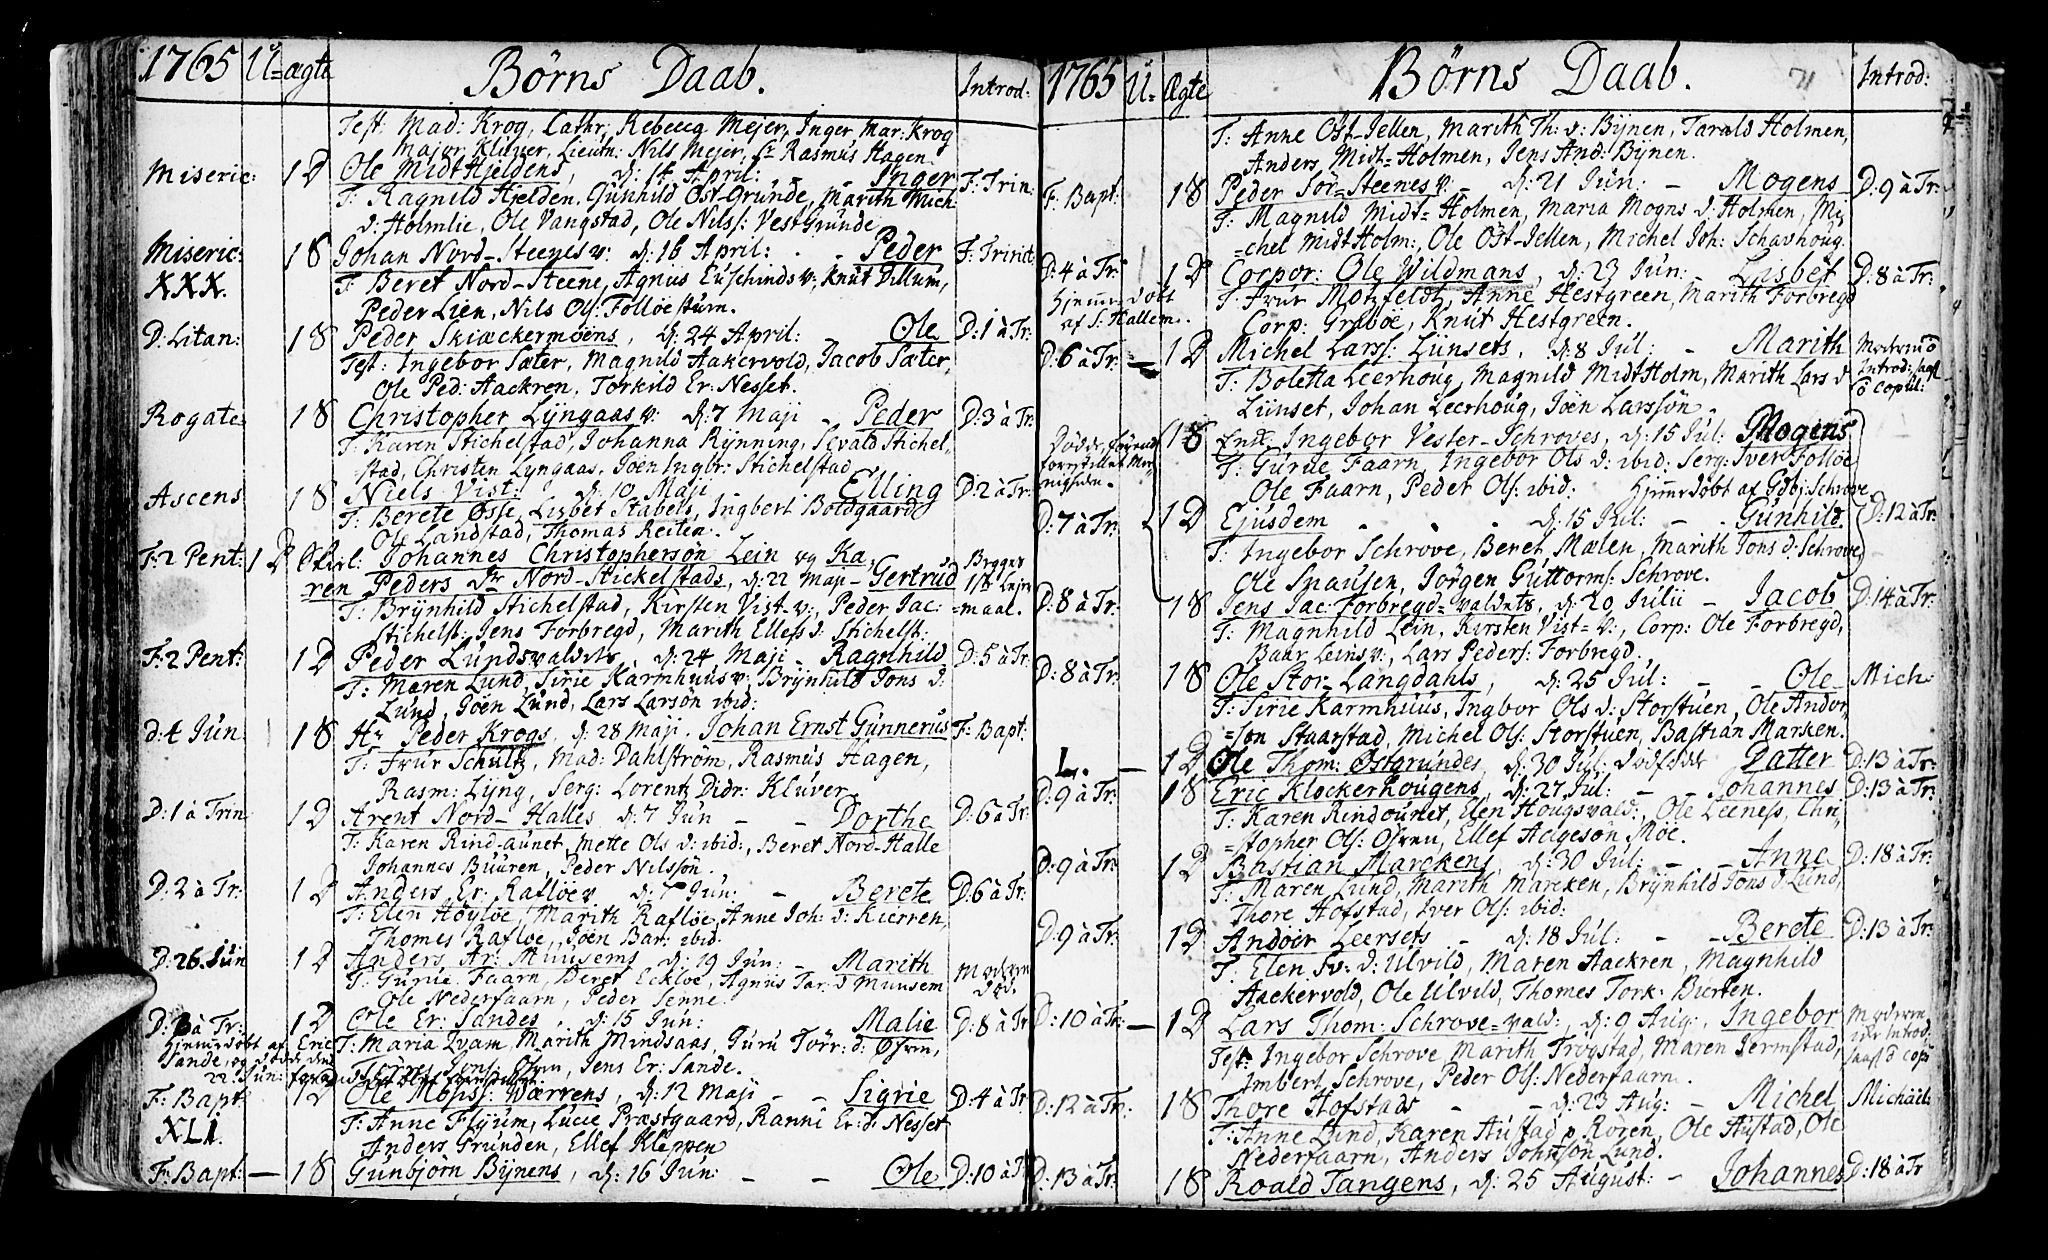 1765 U= ægte Börns Daab. Introd:
Test: Mad: Krog, Cathr: Rebecca Mejer, Inger Mar: Krog
Major Klüver, Lieutn: Nils Mejer, Sr Rasmus Hagen
Miseric: 1 D Ole MidtHieldens, d: 14 April: - Inger F: Trin:
T: Ragnild Hjelden, Gunhild Öst-Grunde, Marith Mich
d: Holmlie, Ole Vangstad, Ole Nilss: VestGrunde
Miseric: 1 S Johan Nord-Steenes v: d: 16 April: - Peder F: Trinit:
XXX. T: Beret Nord-Steene, Agnus v: Knut Dillum,
Peder Lien, Nils Ols: Folloesturn.
D: Litan: 1 S Peder Skiæckermoens, d: 24 April: - Ole D: 1 à Tr:
Test: Ingebor Sæter, Magnild Aakervold, Jacob Sæter,
Ole Ped: Aackren, Torkild Er: Nesset.
Rogate: 1 S Christopher Lyngaas v: d: 7 Maji - Peder D: 3 à Tr:
T: Karen Stichelstad, Johanna Rynning, Sevald Stichel,
stad, Christen Lyngaas, Joen Ingbr: Stichelstad
Ascens 1 S Niels Vist: d: 10 Maji - Elling D: 2 à Tr:
T: Berete Øsse, Lisbet Stabels, Ingbert Boldgaard
Ole Landstad, Thomas Reiten.
F: 2 Pent: 1 D Johannes Christophersön Lein og Ka,
ren Peders dr Nord-Stickelstads, d: 22 Maji - Gertrud Bygger 1ste Lejer
T: Brynhild Stichelstad, Kirsten Vist v:, Peder Jac: =maal.
Stichelst: Jens Forbregd, Marith Elless d: Stichelst:
F: 2 Pent: 1 D Peder Lundsvaldets d: 24 Maji - Ragnhild D: 5 à Tr:
T: Maren Lund, Sirie Karmhuus v: Brynhild Jons d:
Lund, Joen Lund, Lars Larsön ibid:
d: 4 Jun 1 S Hr Peder Krogs, d: 28 Maji. Johan Ernst Gunnerus F: Bapt:
T: Frur Schultz, Mad: Dahlström, Rasmus Hagen,
Rasm: Lyng, Serg: Lorentz Didr: Klüver.
D: 1 à Trin 1 D Arent Nord-Halles d: 7 Jun - - Dorthe D: 6 à Tr:
T: Karen Rind-aunet, Mette Ols d: ibid:, Beret Nord-Halle
Johannes Buuren, Peder Nilssön.
D: 2 à Tr: 1 D Anders Er: Rafloe v d: 7 Jun: - Berete D: 6 à Tr:
T: Elen Høyloe, Marith Rafloe, Anne Joh: d: Kierren,
Thomes Rafloe, Joen Bar: ibid.
D: 26. Jun 1 D Anders Ar: Muusems d: 19 Jun: - Marith Moderen død.
T: Gurue Faarn, Beret Eckloe, Agnus Tar: d Muusem
Ole Nederfaarn, Peder Jenne.
D: 3 à Tr: 1 D Ole Er: Sandes .. d: 15 Jun: Malie D: 8 à Tr
Hjemedøbt af Eric T: Maria Kvam, Marith Mindsaas, Guru Törr: d: Østn,
Sande, og døde den Jens Östn, Jens Er: Sande.
22. Jun:
F: Bapt: 1 D Ole Mogss: Wærrens, d: 12 Maji - - Sigrie D: 4 à Tr
XLI. T: Anne Flyum, Lucie Præstgaard, Ranni Er: d: Nesset
Anders Grunden, Ellef Kleppen
F: Bapt: - 1 S Gunbjörn Bynens, d: 16 Jun: - - Ole D: 10 à Tr
1765 U= Ægte Börns Daab. 71 Introd:
T: Anne Öst-Jellen, Marith Th: d: Bynen, Tarald Holmen,
Anders Midt=Holmen, Jens And: Bynen.
F: Bapt: 1 S Peder Sör=Steenes v: d: 21 Jun: - Mogens D: 9 à Tr:
T: Magnild Midt=Holmen, Maria Mogns d: Holmen, Mi,
=chel MidtHolm:, Ole Öst-Jellen, Michel Joh: Schavhoug.
D: 4 à Tr: 1 D Corpor: Ole Wildmans, d: 23 Jun: - Lisbet D: 8 à Tr:
Hjemedøbt T: Frur Motzfeldt, Anne Hestgreen, Marith Forbregd
af S: Hallem. Corp: Graboe, Knut Hestgreen.
D: 6 à Tr: - 1 D Michel Larss: Lunsets, d: 8 Jul: - Marith Moderen ö
T: Boletta Leerhoug, Magnild MidtHolm, Marith Lars d Introd:
Lünset, Johan Leerhoug, Joen Larssön. ö copul:
1 S Enke Ingebor Vester-Schroves, d: 15 Jul: Mogens
T: Gurue Faarn, Ingebor Ols d: ibid: Serg: Iver Folloe
Ole Faarn, Peder Ols: ibid: Hjemedøbt af Gdbj: Schrove
D: 7 à Tr: 1 D Ejusdem . . . d: 15 Jul: - Gunhild. D: 12 à Tr:
T: Ingebor Schrove, Beret Mælen, Marith Jons d: Schrove,
Ole Snausen, Jörgen Guttorms: Schrove.
D: 8 à Tr: 1 S Jens Jac: Forbregd=valdets, d: 20 Julii - Jacob D: 14 à Tr:
T: Magnhild Lein, Kirsten Vist=v:, Corp: Ole Forbregd,
Baar Leins v:, Lars Peders: Forbregd.
D: 8 à Tr: 1 S Ole Stor-Langdahls, d: 25 Jul: - - Ole Mich:
T: Sirie Karmhuus, Ingbor Ols d: Storstuen, Ole Andor,
=son Staarstad, Michel Ols: Storstuen, Bastian Marken.
L. - 1 D Ole Thom: Östgrundes, d: 30 Jul: Dödfødde Datter D: 13 à Tr:
D: 9 à Tr: 1 S Eric Klockerhougens, d: 27 Jul: - - Johannes D: 13 à Tr:
T: Karen Rindounet, Elen Hougsvald:, Ole Leeness, Chri,
=stopher Ols: Østnu, Ellef Helgesön Moe.
D: 9 à Tr: 1 D Bastian Marckens, d: 30 Jul: - - Anne D: 18 à Tr:
T: Maren Lund, Marith Marcken, Brynhild Jons d: Lund,
Thore Hofstad, Iver Ols: ibid:
D: 9 à Tr: 1 D Andoer Leersets - d: 18 Jul: - - Berete D: 13 à Tr:
T: Elen Sv: d: Ulvild, Maren Aackren, Magnhild
Aackervold, Ole Ulvild, Thomes Tork: Bierten.
D: 10 à Tr: - 1 D Lars Thom: Schrove=vald:, d: 9 Aug:, Ingebor Moderen
Test: Ingebor Schrove, Marith Trögstad, Maren Jermstad, Introd:
Imbert Schrove, Peder Ols: Nederfaarn.
D: 12 à Tr: 1 S Thore Hofstads - - d: 23 Aug: - Michel Michäel:
T: Anne Lund, Karen Austad p. Koren, Ole Austad, Ole
Nederfaarn, Anders Johssön Lund.
D: 13 à Tr: 1 S Roald Tangens, d: 25 August: - Johannes D: 18 à Tr